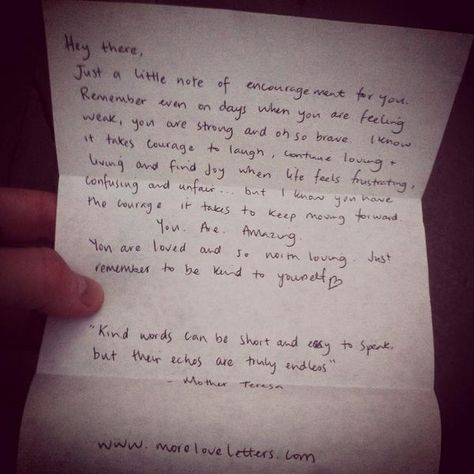 Hey there,
Just a little note of encouragement for you.
Remember even on days when you are feeling
weak, you are strong and oh so brave. I know
it takes courage to laugh, continue loving +
living and find joy when life feels frustrating,
confusing and unfair... but I know you have
the courage it takes to keep moving forward.
You. Are. Amazing.
You are loved and so worth loving. Just
remember to be kind to yourself ♡
"Kind words can be short and easy to speak,
but their echos are truly endless"
- Mother Teresa
www.moreloveletters.com